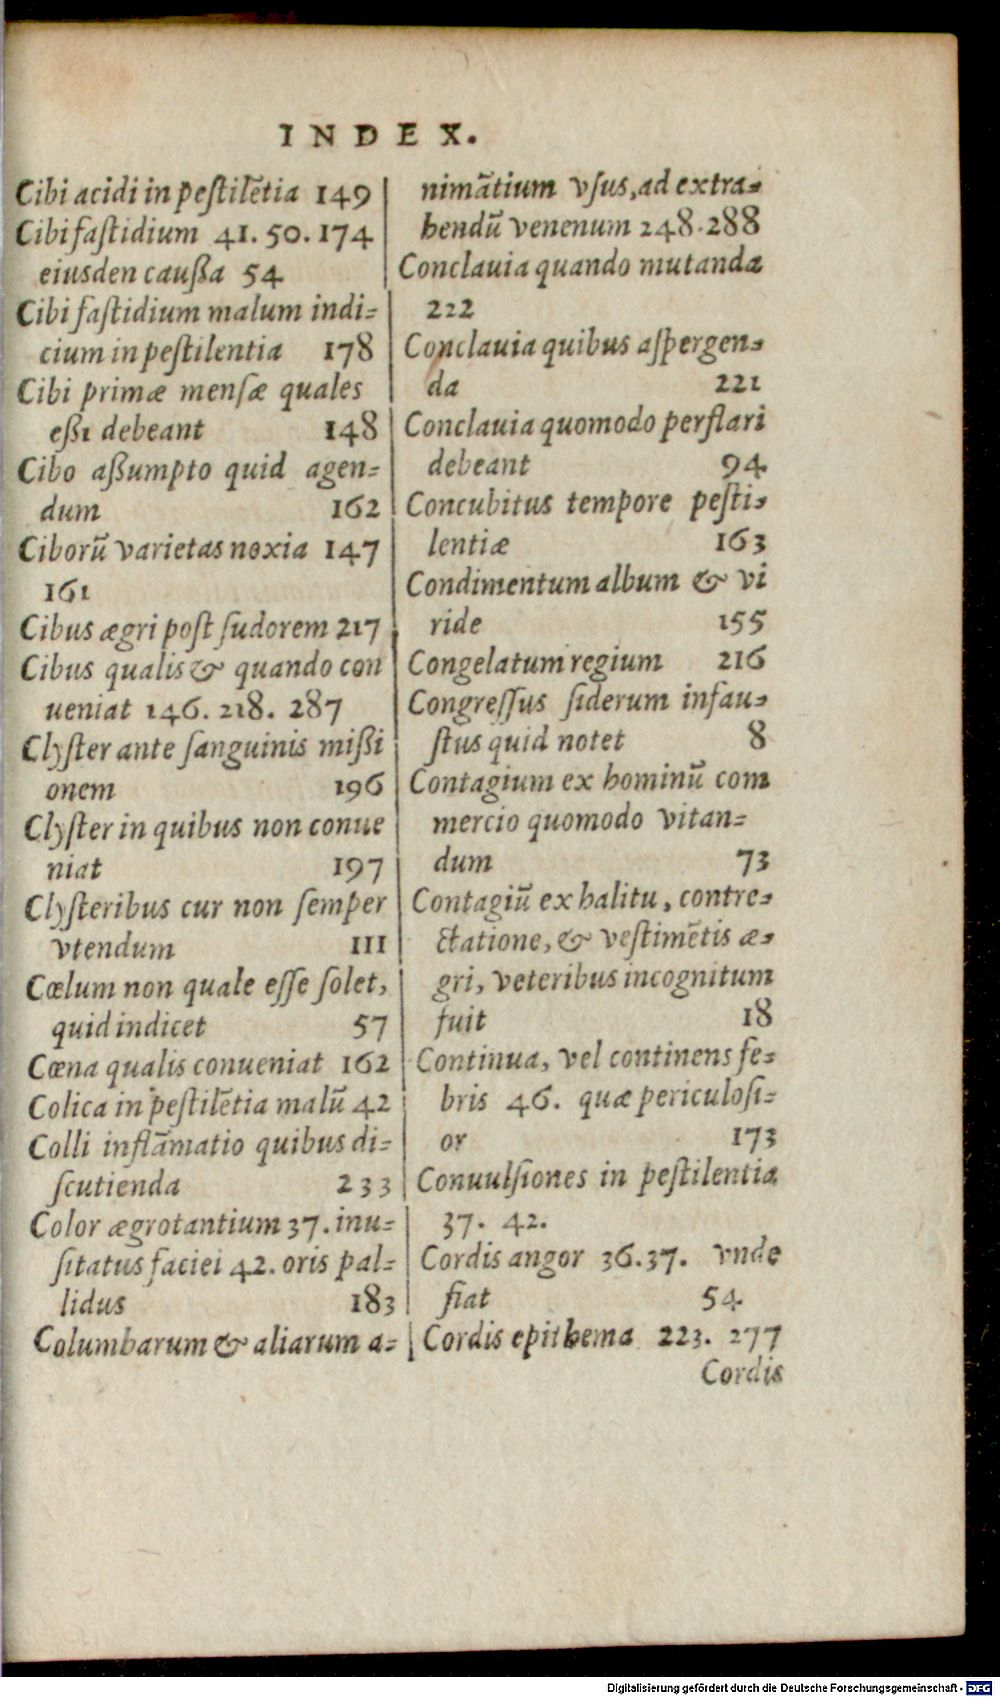 INDEX.
Cibi acidi in peſtilẽtia 149
Cibi faſtidium 41. 50. 174
eiusden cauſſa 54
Cibi faſtidium malum indi-
cium in peſtilentia 178
Cibi primæ menſæ quales
eßi debeant 148
Cibo aßumpto quid agen-
dum 162
Ciborũ varietas noxia 147
161
Cibus ægri poſt ſudorem 217
Cibus qualis & quando con
ueniat 146. 218. 287
Clyſter ante ſanguinis mißi
onem 196
Clyſter in quibus non conue
niat 197
Clyſteribus cur non ſemper
vtendum 111
Cœlum non quale eſſe ſolet,
quid indicet 57
Cœna qualis conueniat 162
Colica in peſtilẽtia malũ 42
Colli inflãmatio quibus di-
ſcutienda 233
Color ægrotantium 37. inu-
ſitatus faciei 42. oris pal-
lidus 183
Columbarum & aliarum a-
nimãtium vſus, ad extra-
hendũ venenum 248. 288
Conclauia quando mutanda
222
Conclauia quibus aſpergen-
da 221
Conclauia quomodo perflari
debeant 94
Concubitus tempore peſti-
lentiæ 163
Condimentum album & vi
ride 155
Congelatum regium 216
Congreſſus ſiderum infau-
ſtus quid notet 8
Contagium ex hominũ com
mercio quomodo vitan-
dum 73
Contagiũ ex halitu, contre-
ctatione, & veſtimẽtis æ-
gri, veteribus incognitum
fuit 18
Continua, vel continens fe-
bris 46. quæ periculoſi-
or 173
Conuulſiones in peſtilentia
37. 42.
Cordis angor 36. 37. vnde
fiat 54.
Cordis epithema 223. 277
Cordis
Digitalisierung gefördert durch die Deutsche Forschungsgemeinschaft - DFG